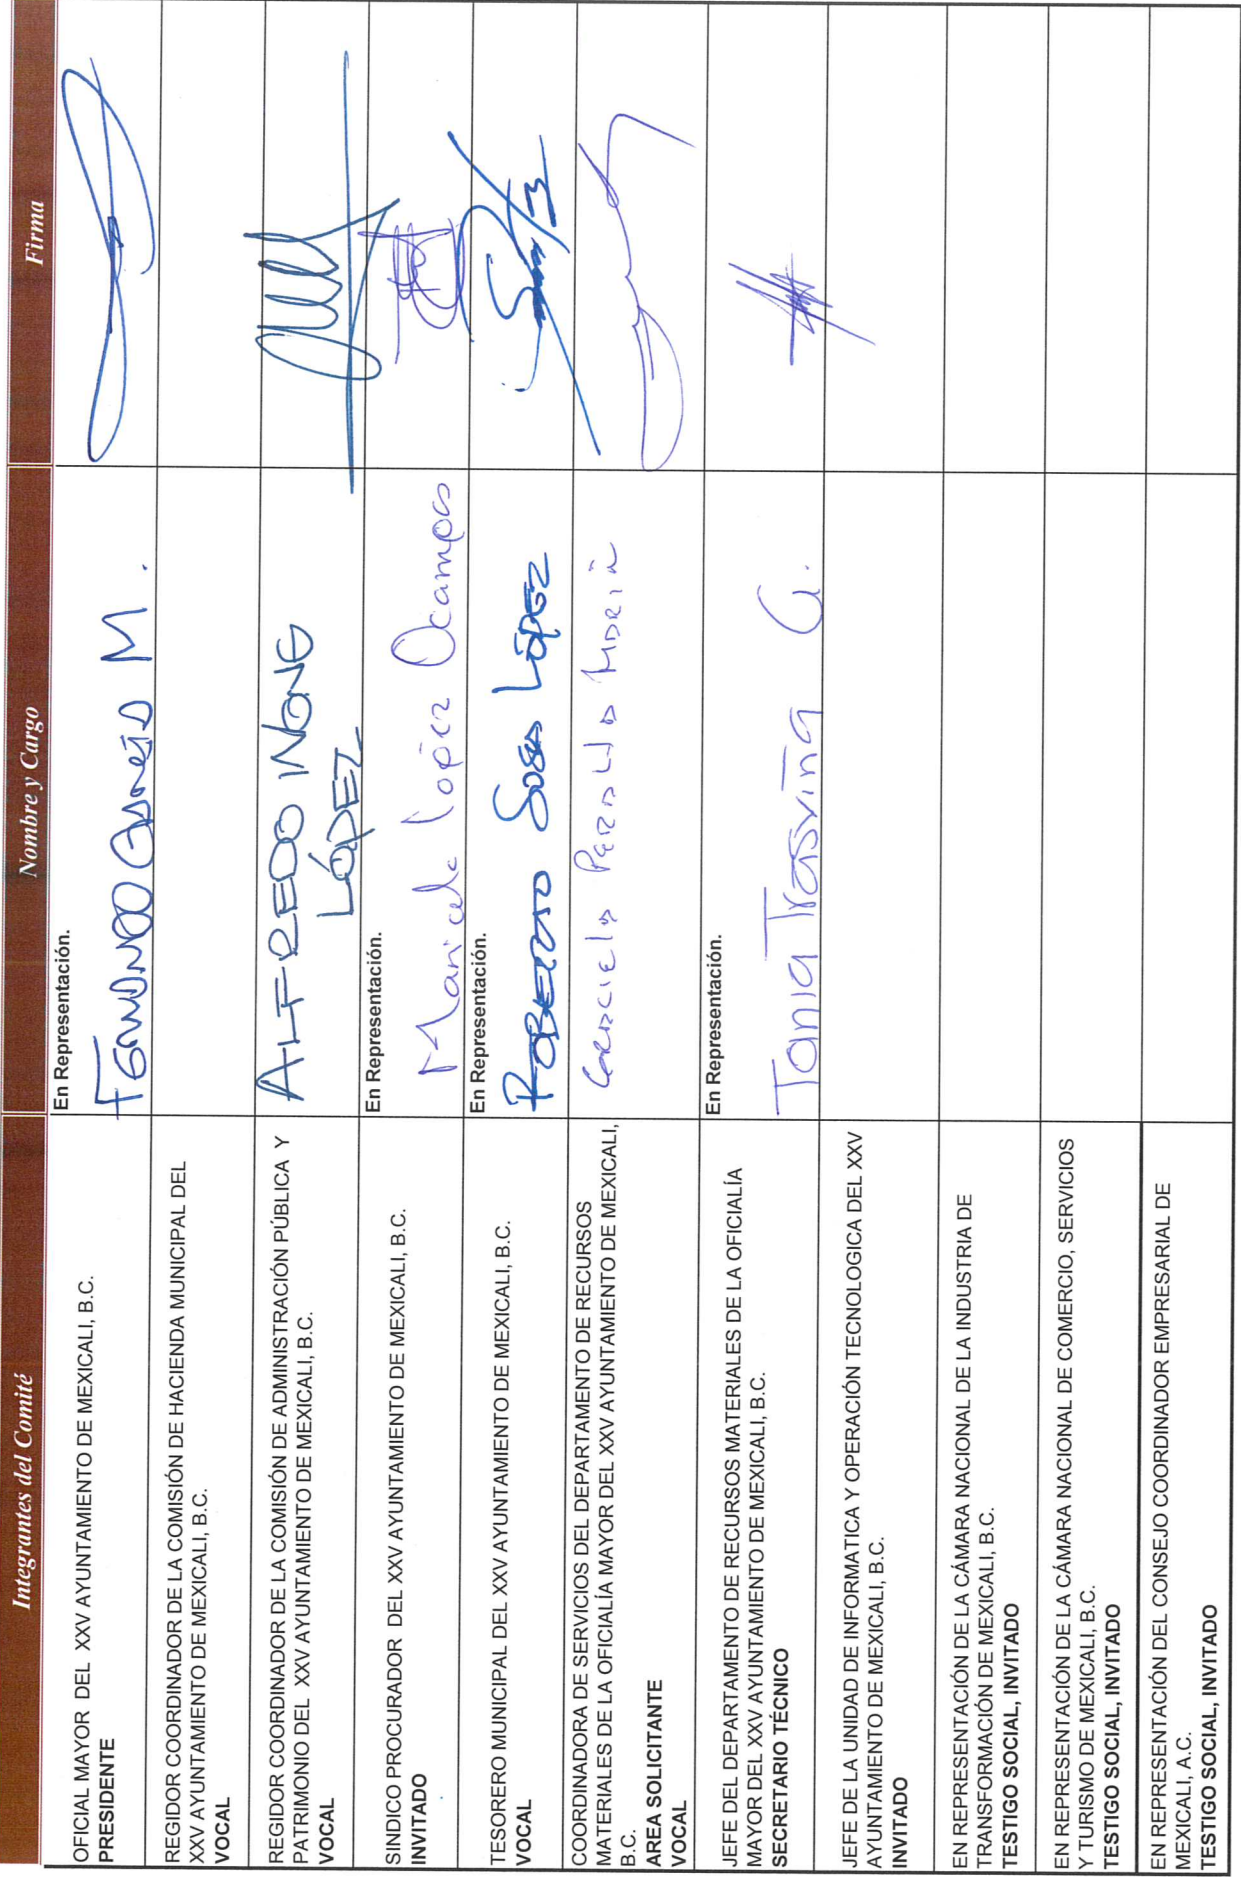 Integrantes del Comité
Nombre y Cargo
Firma
OFICIAL MAYOR DEL XXV AYUNTAMIENTO DE MEXICALI, B.C.
PRESIDENTE
En Representación.
M.
REGIDOR COORDINADOR DE LA COMISIÓN DE HACIENDA MUNICIPAL DEL
XXV AYUNTAMIENTO DE MEXICALI, B.C.
VOCAL
REGIDOR COORDINADOR DE LA COMISIÓN DE ADMINISTRACIÓN PÚBLICA Y
PATRIMONIO DEL XXV AYUNTAMIENTO DE MEXICALI, B.C.
VOCAL
ALFREDO WONG
LÓPEZ
SINDICO PROCURADOR DEL XXV AYUNTAMIENTO DE MEXICALI, B.C.
INVITADO
En Representación.
Maricela López Ocampo
TESORERO MUNICIPAL DEL XXV AYUNTAMIENTO DE MEXICALI, B.C.
VOCAL
En Representación.
ROBERTO SOSA LÓPEZ
COORDINADORA DE SERVICIOS DEL DEPARTAMENTO DE RECURSOS
MATERIALES DE LA OFICIALÍA MAYOR DEL XXV AYUNTAMIENTO DE MEXICALI,
B.C.
AREA SOLICITANTE
VOCAL
JEFE DEL DEPARTAMENTO DE RECURSOS MATERIALES DE LA OFICIALÍA
MAYOR DEL XXV AYUNTAMIENTO DE MEXICALI, B.C.
SECRETARIO TÉCNICO
En Representación.
Tania Trasviña G.
JEFE DE LA UNIDAD DE INFORMATICA Y OPERACIÓN TECNOLOGICA DEL XXV
AYUNTAMIENTO DE MEXICALI, B.C.
INVITADO
EN REPRESENTACIÓN DE LA CÁMARA NACIONAL DE LA INDUSTRIA DE
TRANSFORMACIÓN DE MEXICALI, B.C.
TESTIGO SOCIAL, INVITADO
EN REPRESENTACIÓN DE LA CÁMARA NACIONAL DE COMERCIO, SERVICIOS
Y TURISMO DE MEXICALI, B.C.
TESTIGO SOCIAL, INVITADO
EN REPRESENTACIÓN DEL CONSEJO COORDINADOR EMPRESARIAL DE
MEXICALI, A.C.
TESTIGO SOCIAL, INVITADO